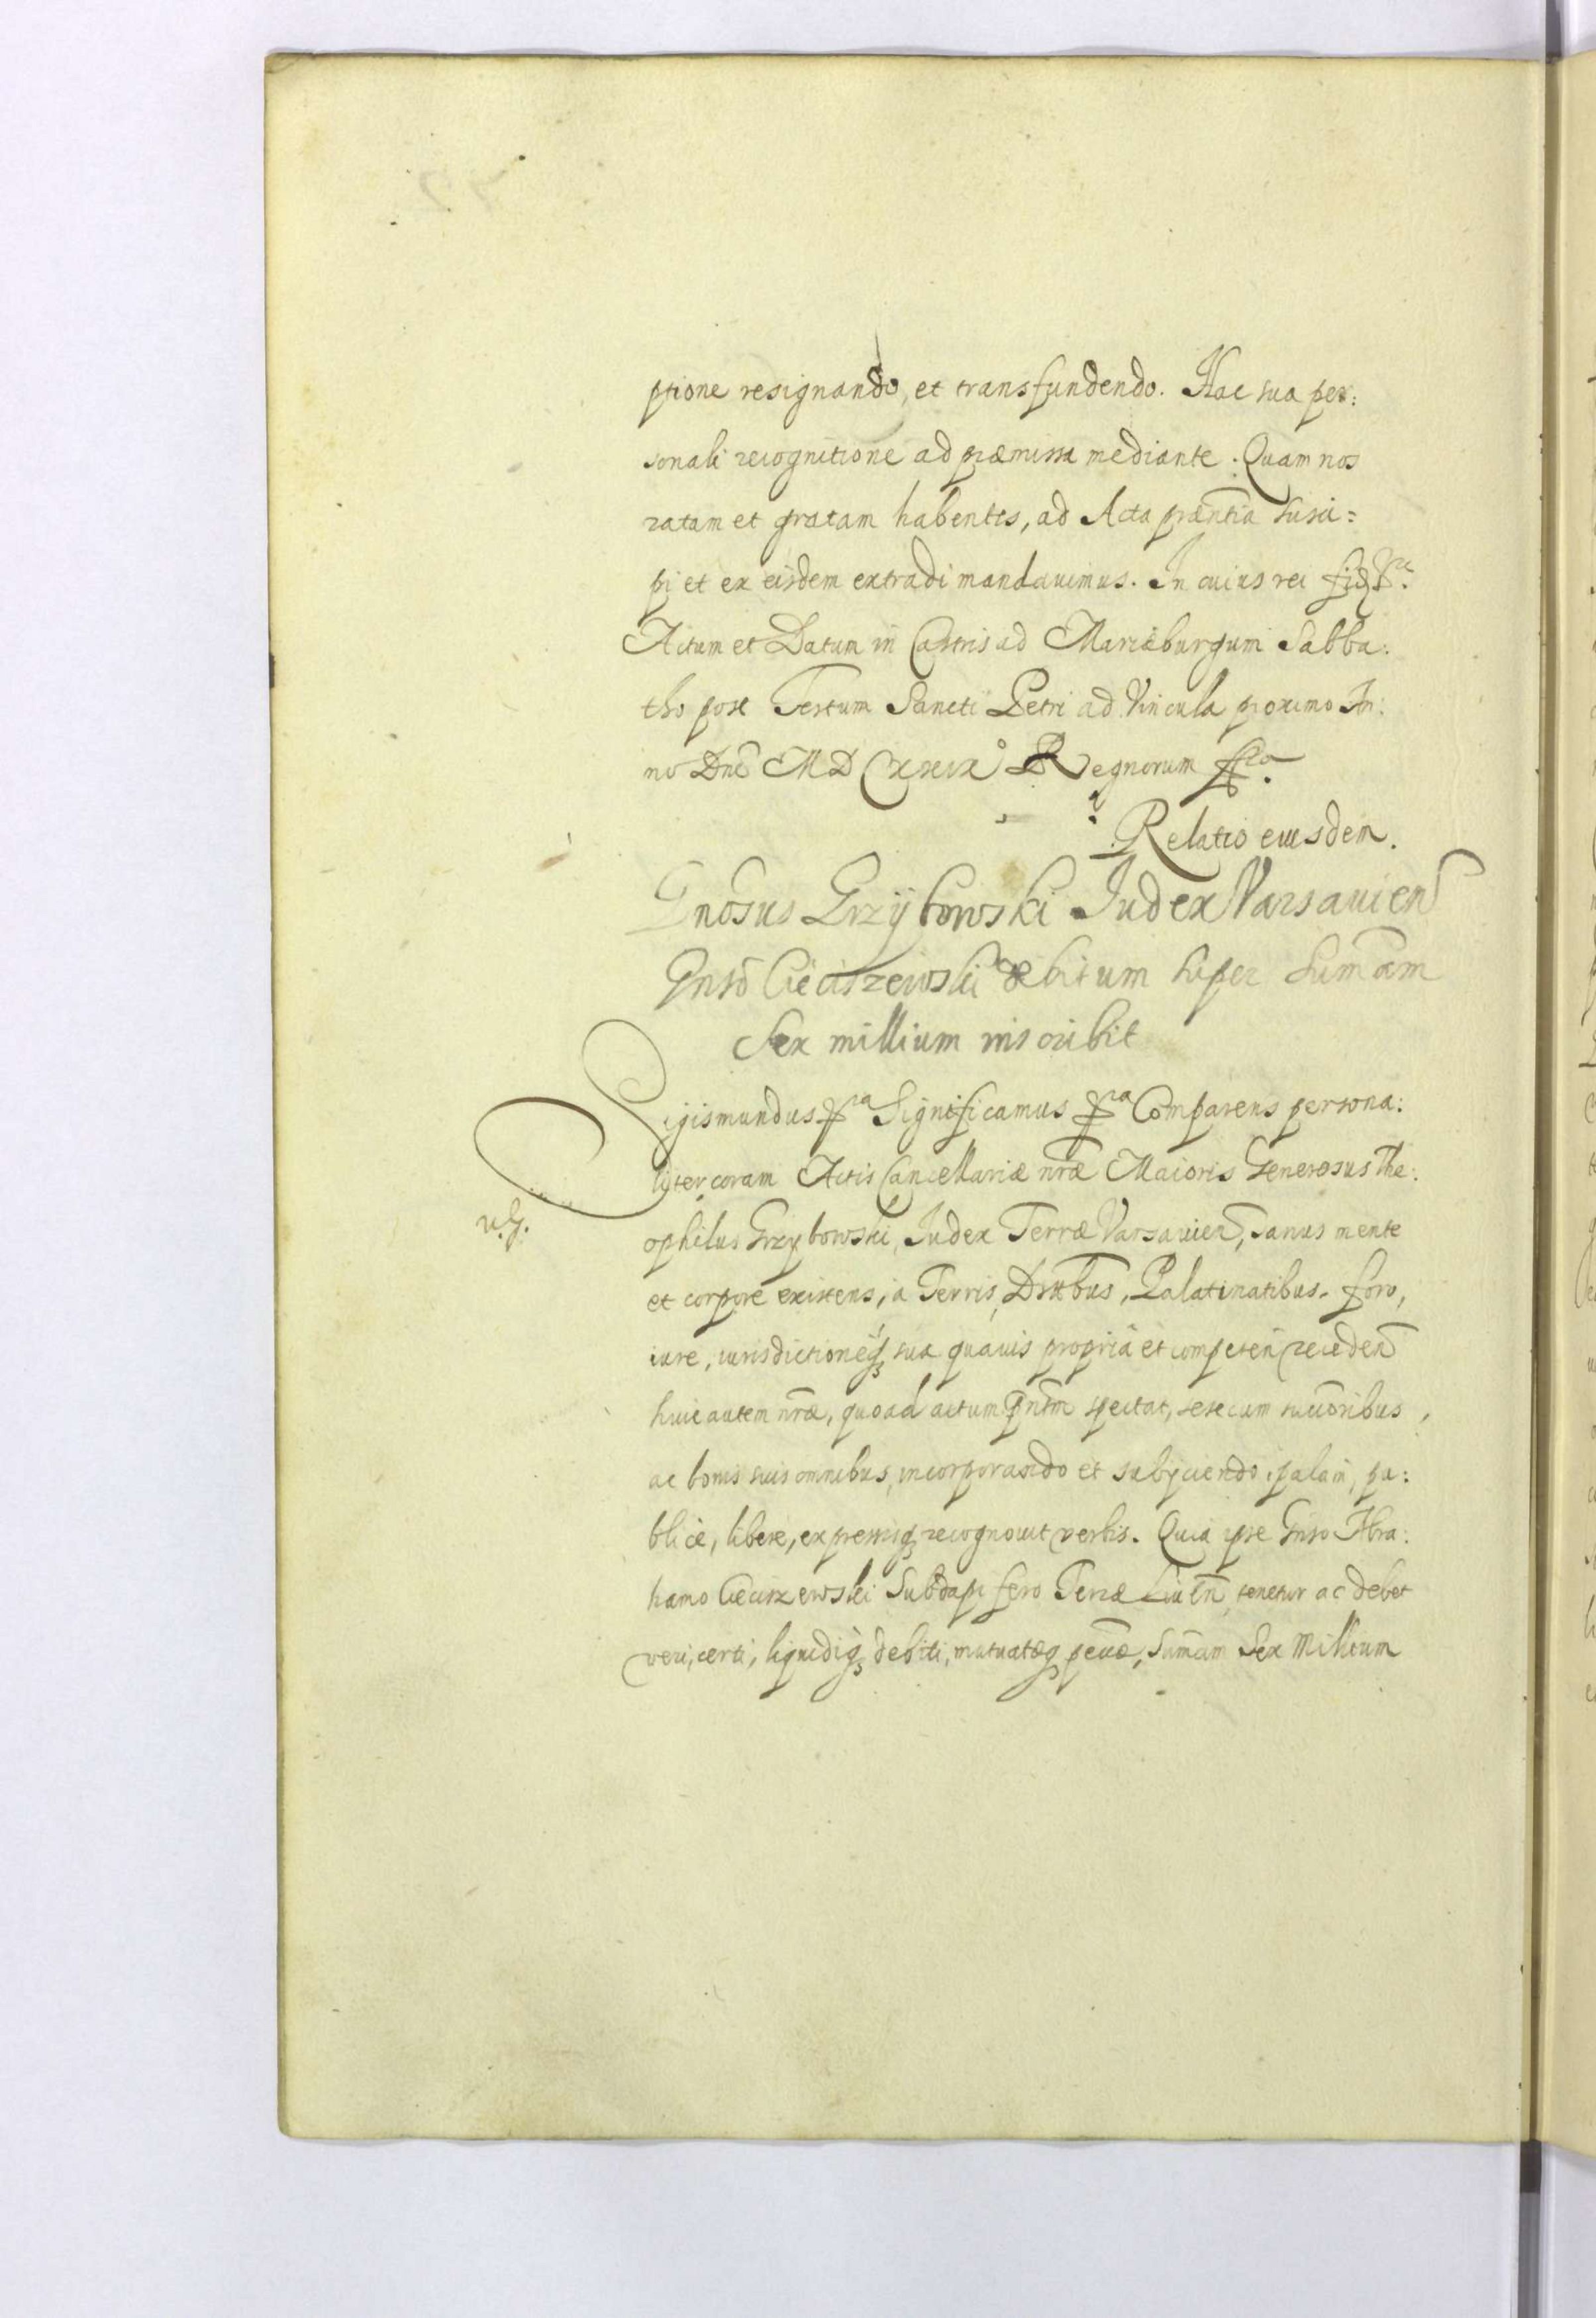 ptione resignando, et transfundendo. Hac sua per:
sonali recognitione ad præmissa mediante. Quam nos
ratam et gratam habentes, ad Acta præntia susci=
pi et ex eisdem extradi mandauimus. In cuius rei fid
Actum et Datum in Castris ad Mariæburgum Sabba:
tho post Festum Sancti Petri ad Vincula proximo An:
no Dni MDCXXIX Regnorum
Relatio eiusdem.
Gnosus Grzÿbowski Iudex Varsauien
Gnso Cieciszewski debitum super Summam
Sex millium inscribit
Sigismundus pra Significamus pra Comparens persona:
liter coram Actis Cancellariæ nræ Maioris Generosus The:
v.G.
ophilus Grzybowski, Iudex Terræ Varsauien, sanus mente
et corpore existens, a Terris, Dsttbus, Palatinatibus, foro,
iure, iurisdictioneq3 sua quauis propria et competen receden
huic autem nræ, quoad actum pntm spectat, sese cum succoribus,
ac bonis suis omnibus, incorporando et subyciendo, palam, pu:
blice, libere, expressisq3 recognouit verbis. Quia ipse Gnso Abra:
hamo Cieciszewski Subdapifero Terræ Liuen, tenetur ac debet
veri, certi, liquidiq3 debiti, mutuatæq3 pecuæ, Summam Sex Millium